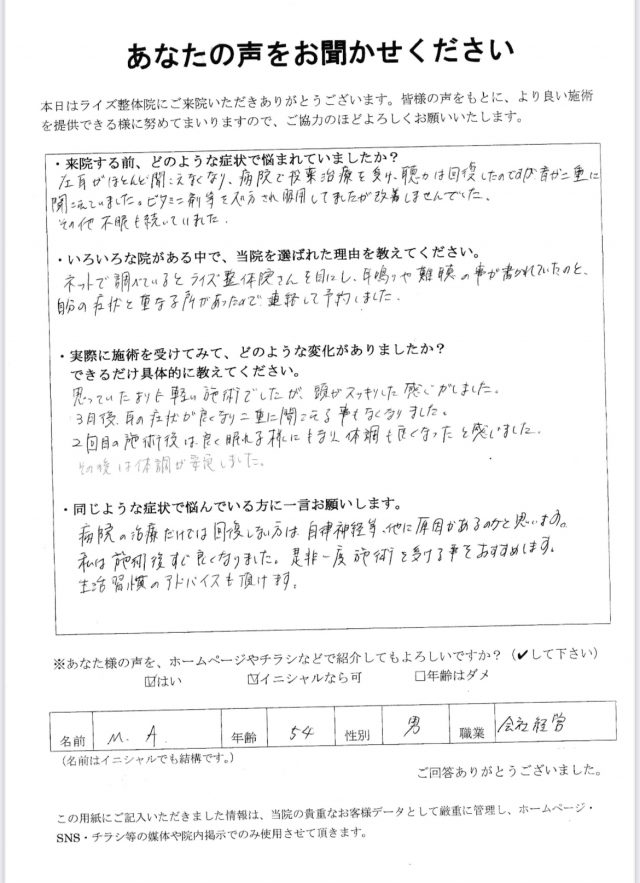 あなたの声をお聞かせください
本日はライズ整体院にご来院いただきありがとうございます。皆様の声をもとに、より良い施術
を提供できる様に努めてまいりますので、ご協力のほどよろしくお願いいたします。
・来院する前、どのような症状で悩まれていましたか？
左耳がほとんど聞こえなくなり、病院で投薬治療を受け、聴力は回復したのですが音が二重に
聞こえていました。ビタミン剤等を処方され服用してましたが改善しませんでした。
その他不眠も続いていました。
・いろいろな院がある中で、当院を選ばれた理由を教えてください。
ネットで調べているとライズ整体院さんを目にし、耳鳴りや難聴の事が書かれていたのと、
自分の症状と重なる所があったので連絡して予約しました。
・実際に施術を受けてみて、どのような変化がありましたか？
できるだけ具体的に教えてください。
思っていたよりも軽い施術でしたが、頭がスッキリした感じがしました。
3日後、耳の症状が良くなり二重に聞こえる事もなくなりました。
2回目の施術後は良く眠れる様にもなり、体調も良くなったと感じました。
その後は体調が安定しました。
・同じような症状で悩んでいる方に一言お願いします。
病院の治療だけでは回復しない方は、自律神経等、他に原因があるのかと思います。
私は施術後すぐ良くなりました。是非一度施術を受ける事をおすすめします。
生活習慣のアドバイスも頂けます。
※あなた様の声を、ホームページやチラシなどで紹介してもよろしいですか？（✔して下さい）
☑はい ☑イニシャルなら可 □年齢はダメ
名前 M. A. 年齢 54 性別 男 職業 会社経営
（名前はイニシャルでも結構です。）
ご回答ありがとうございました。
この用紙にご記入いただきました情報は、当院の貴重なお客様データとして厳重に管理し、ホームページ・
SNS・チラシ等の媒体や院内掲示でのみ使用させて頂きます。